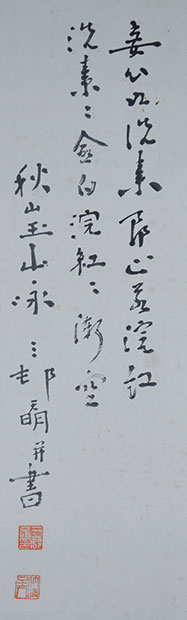 妾心如洗素郎心若浣紅
洗素〻愈白浣紅〻漸空
秋山玉山詠三邨并書